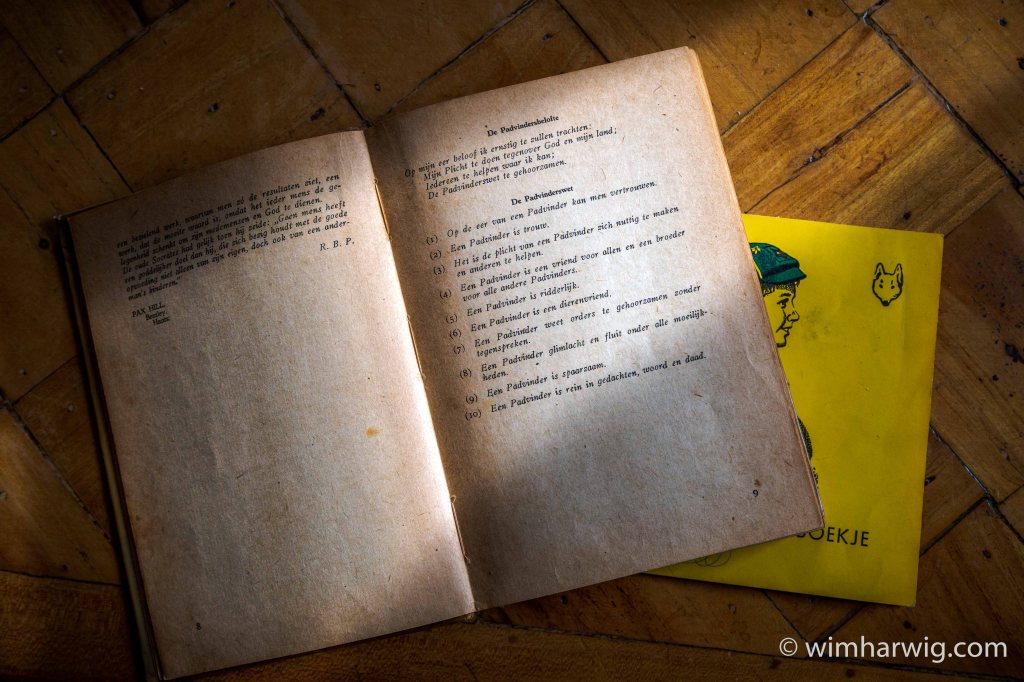 een bezielend werk, waarvan men zó de resultaten ziet, een
werk, dat de moeite waard is, omdat het ieder mens de ge-
legenheid schenkt om zijn medemensen en God te dienen.
De oude Socrates had gelijk toen hij zeide: „Geen mens heeft
een goddelijker doel dan hij, die zich bezig houdt met de goede
opvoeding niet alleen van zijn eigen, doch ook van een ander-
man's kinderen."
R. B. P.
PAX HILL.
Bentley.
Hants.
8
De Padvindersbelofte
Op mijn eer beloof ik ernstig te zullen trachten:
Mijn Plicht te doen tegenover God en mijn land;
Iedereen te helpen waar ik kan;
De Padvinderswet te gehoorzamen.
De Padvinderswet
(1) Op de eer van een Padvinder kan men vertrouwen.
(2) Een Padvinder is trouw.
(3) Het is de plicht van een Padvinder zich nuttig te maken
en anderen te helpen.
(4) Een Padvinder is een vriend voor allen en een broeder
voor alle andere Padvinders.
(5) Een Padvinder is ridderlijk.
(6) Een Padvinder is een dierenvriend.
(7) Een Padvinder weet orders te gehoorzamen zonder
tegenspreken.
(8) Een Padvinder glimlacht en fluit onder alle moeilijk-
heden.
(9) Een Padvinder is spaarzaam.
(10) Een Padvinder is rein in gedachten, woord en daad.
9
OEKJE
© wimharwig.com